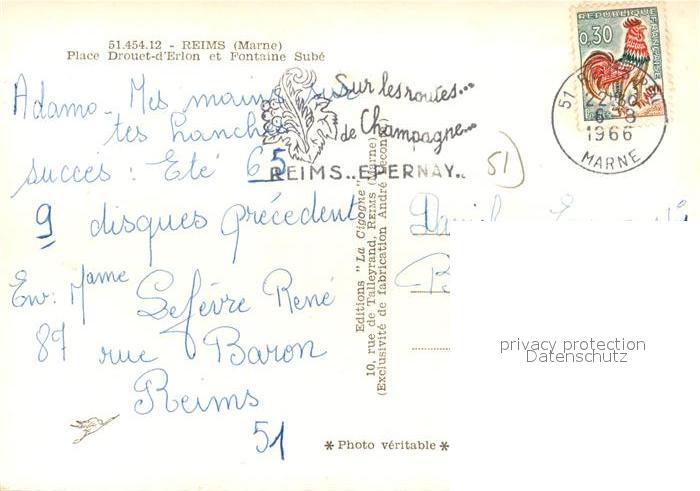 51.454.12 - REIMS (Marne)
Place Drouet-d'Erlon et Fontaine Subé
Adamo.. Mes mains sur
tes hanches
succès : Eté 65
9 disques précédent
Env. Mame Lefèvre René
87 rue Baron
Reims
51
Sur les routes...
de Champagne...
REIMS..EPERNAY..
51
REPUBLIQUE FRANÇAISE
0,30
51
22H30
6-8
1966
MARNE
Editions "La Cigogne"
10, rue de Talleyrand, REIMS (Marne)
(Exclusivité de fabrication André Lecont
* Photo véritable *
privacy protection
Datenschutz